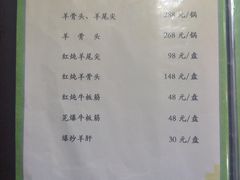 羊骨头、羊尾尖 288 元/锅
羊骨头 268 元/锅
红炖羊尾尖 98 元/盘
红炖羊骨头 148 元/盘
红炖牛板筋 48 元/盘
芫爆牛板筋 48 元/盘
爆炒羊肝 30 元/盘